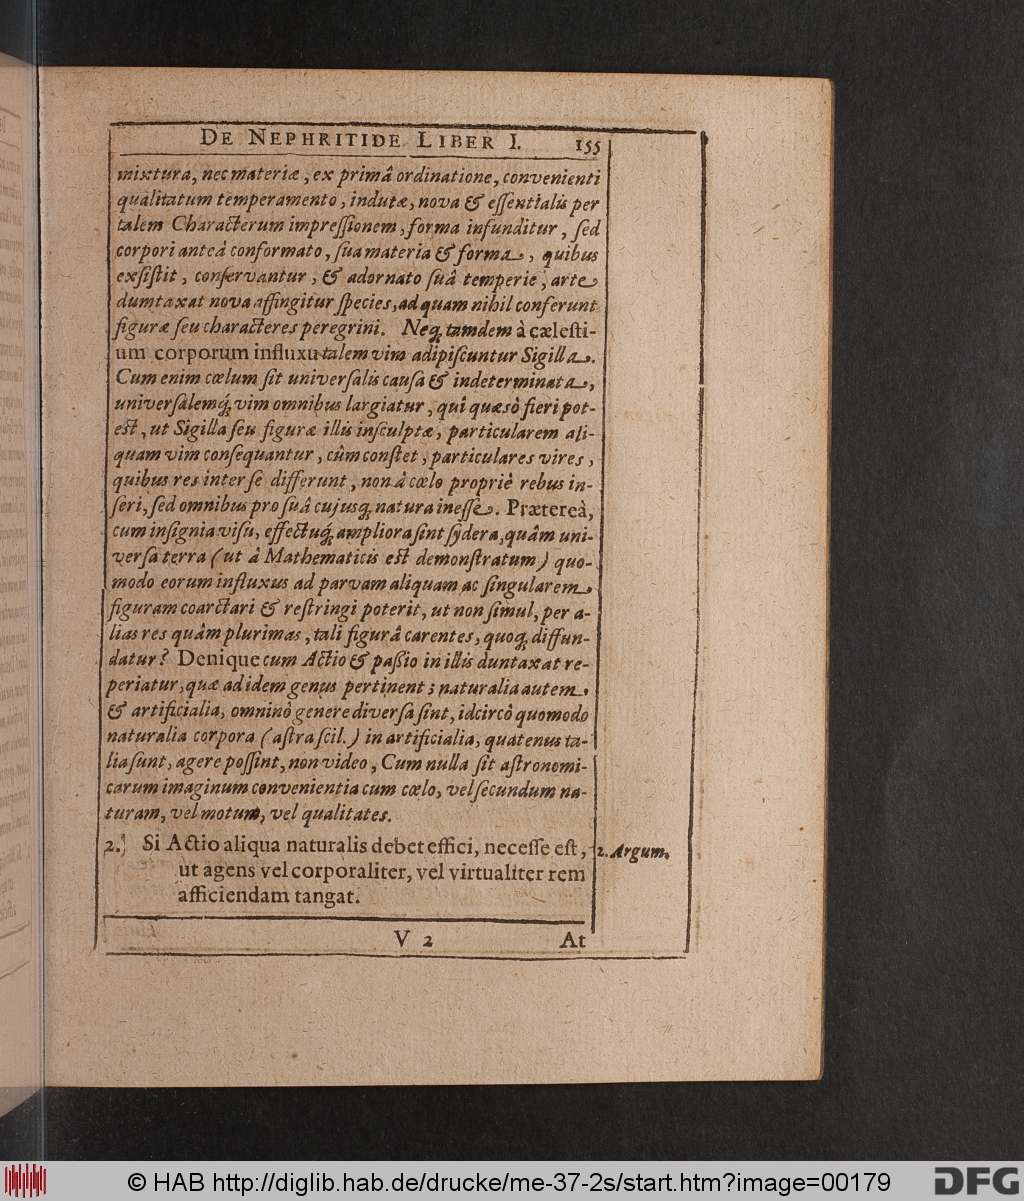 DE NEPHRITIDE LIBER I. 155
mixtura, nec materiæ, ex primâ ordinatione, convenienti
qualitatum temperamento, indutæ, nova & eſſentialis per
talem Characterum impreſſionem, forma infunditur, ſed
corpori anteà conformato, ſua materia & forma, quibus
exſiſtit, conſervantur, & adornato ſuâ temperie, arte
dumtaxat nova affingitur ſpecies, ad quam nihil conferunt
figuræ ſeu characteres peregrini. Neq; tamdem à cæleſti-
um corporum influxu talem vim adipiſcuntur Sigilla.
Cum enim cœlum ſit univerſalis cauſa & indeterminata,
univerſalemq́; vim omnibus largiatur, quî quæsò fieri pot-
eſt, ut Sigilla ſeu figuræ illis inſculptæ, particularem ali-
quam vim conſequantur, cûm conſtet, particulares vires,
quibus res inter ſe differunt, non à cœlo propriè rebus in-
ſeri, ſed omnibus pro ſuâ cujusq; natura ineſſe. Prætereà,
cum inſignia viſu, effectuq́; ampliora ſint ſydera, quâm uni-
verſa terra (ut à Mathematicis eſt demonſtratum) quo-
modo eorum influxus ad parvam aliquam ac ſingularem
figuram coarctari & reſtringi poterit, ut non ſimul, per a-
lias res quâm plurimas, tali figurâ carentes, quoq; diffun-
datur? Denique cum Actio & paßio in illis duntaxat re-
periatur, quæ ad idem genus pertinent; naturalia autem
& artificialia, omninò genere diverſa ſint, idcircò quomodo
naturalia corpora (aſtra ſcil.) in artificialia, quatenus ta-
lia ſunt, agere poſſint, non video, Cum nulla ſit aſtronomi-
carum imaginum convenientia cum cœlo, vel ſecundum na-
turam, vel motum, vel qualitates.
2. Si Actio aliqua naturalis debet effici, neceſſe eſt, 2. Argum.
ut agens vel corporaliter, vel virtualiter rem
afficiendam tangat.
V 2 At
© HAB http://diglib.hab.de/drucke/me-37-2s/start.htm?image=00179 DFG